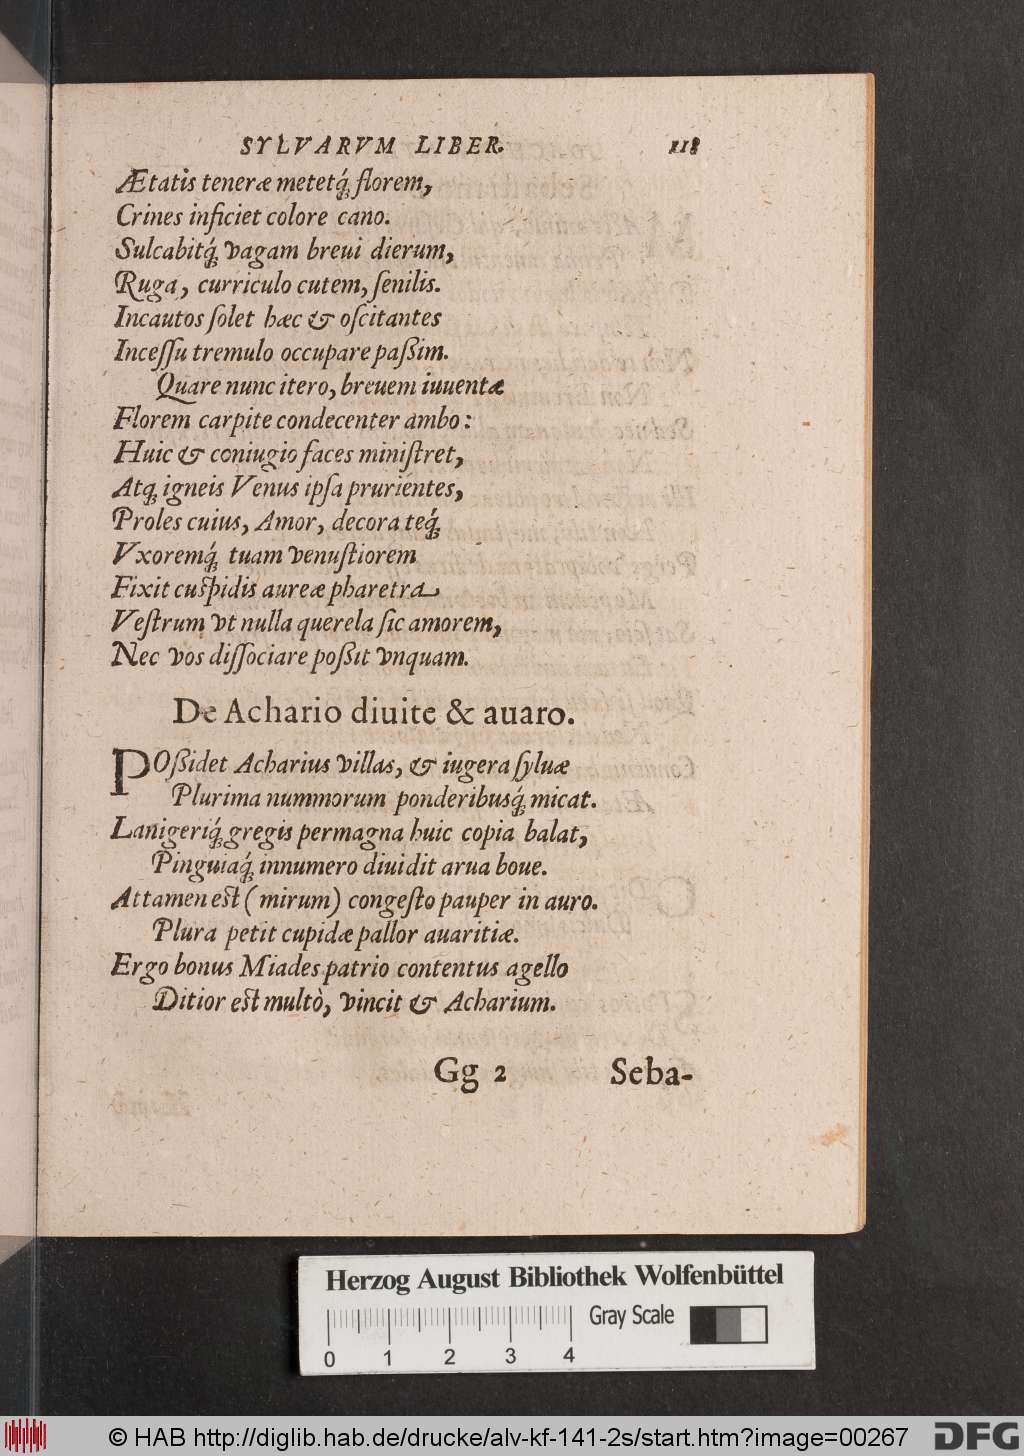 SYLVARVM LIBER. 118
Ætatis teneræ metetq́; florem,
Crines inficiet colore cano.
Sulcabitq́; vagam breui dierum,
Ruga, curriculo cutem, ſenilis.
Incautos ſolet hæc & oſcitantes
Inceſſu tremulo occupare paßim.
Quare nunc itero, breuem iuuentæ
Florem carpite condecenter ambo:
Huic & coniugio faces miniſtret,
Atq; igneis Venus ipſa prurientes,
Proles cuius, Amor, decora teq́;
Vxoremq́; tuam venuſtiorem
Fixit cuſpidis aureæ pharetra
Veſtrum vt nulla querela ſic amorem,
Nec vos diſſociare poßit vnquam.
De Achario diuite & auaro.
POßidet Acharius villas, & iugera ſyluæ
Plurima nummorum ponderibusq́; micat.
Lanigeriq́; gregis permagna huic copia balat,
Pinguiaq́; innumero diuidit arua boue.
Attamen eſt (mirum) congeſto pauper in auro.
Plura petit cupidæ pallor auaritiæ.
Ergo bonus Miades patrio contentus agello
Ditior eſt multò, vincit & Acharium.
Gg 2 Seba-
Herzog August Bibliothek Wolfenbüttel
Gray Scale
0 1 2 3 4
© HAB http://diglib.hab.de/drucke/alv-kf-141-2s/start.htm?image=00267
DFG